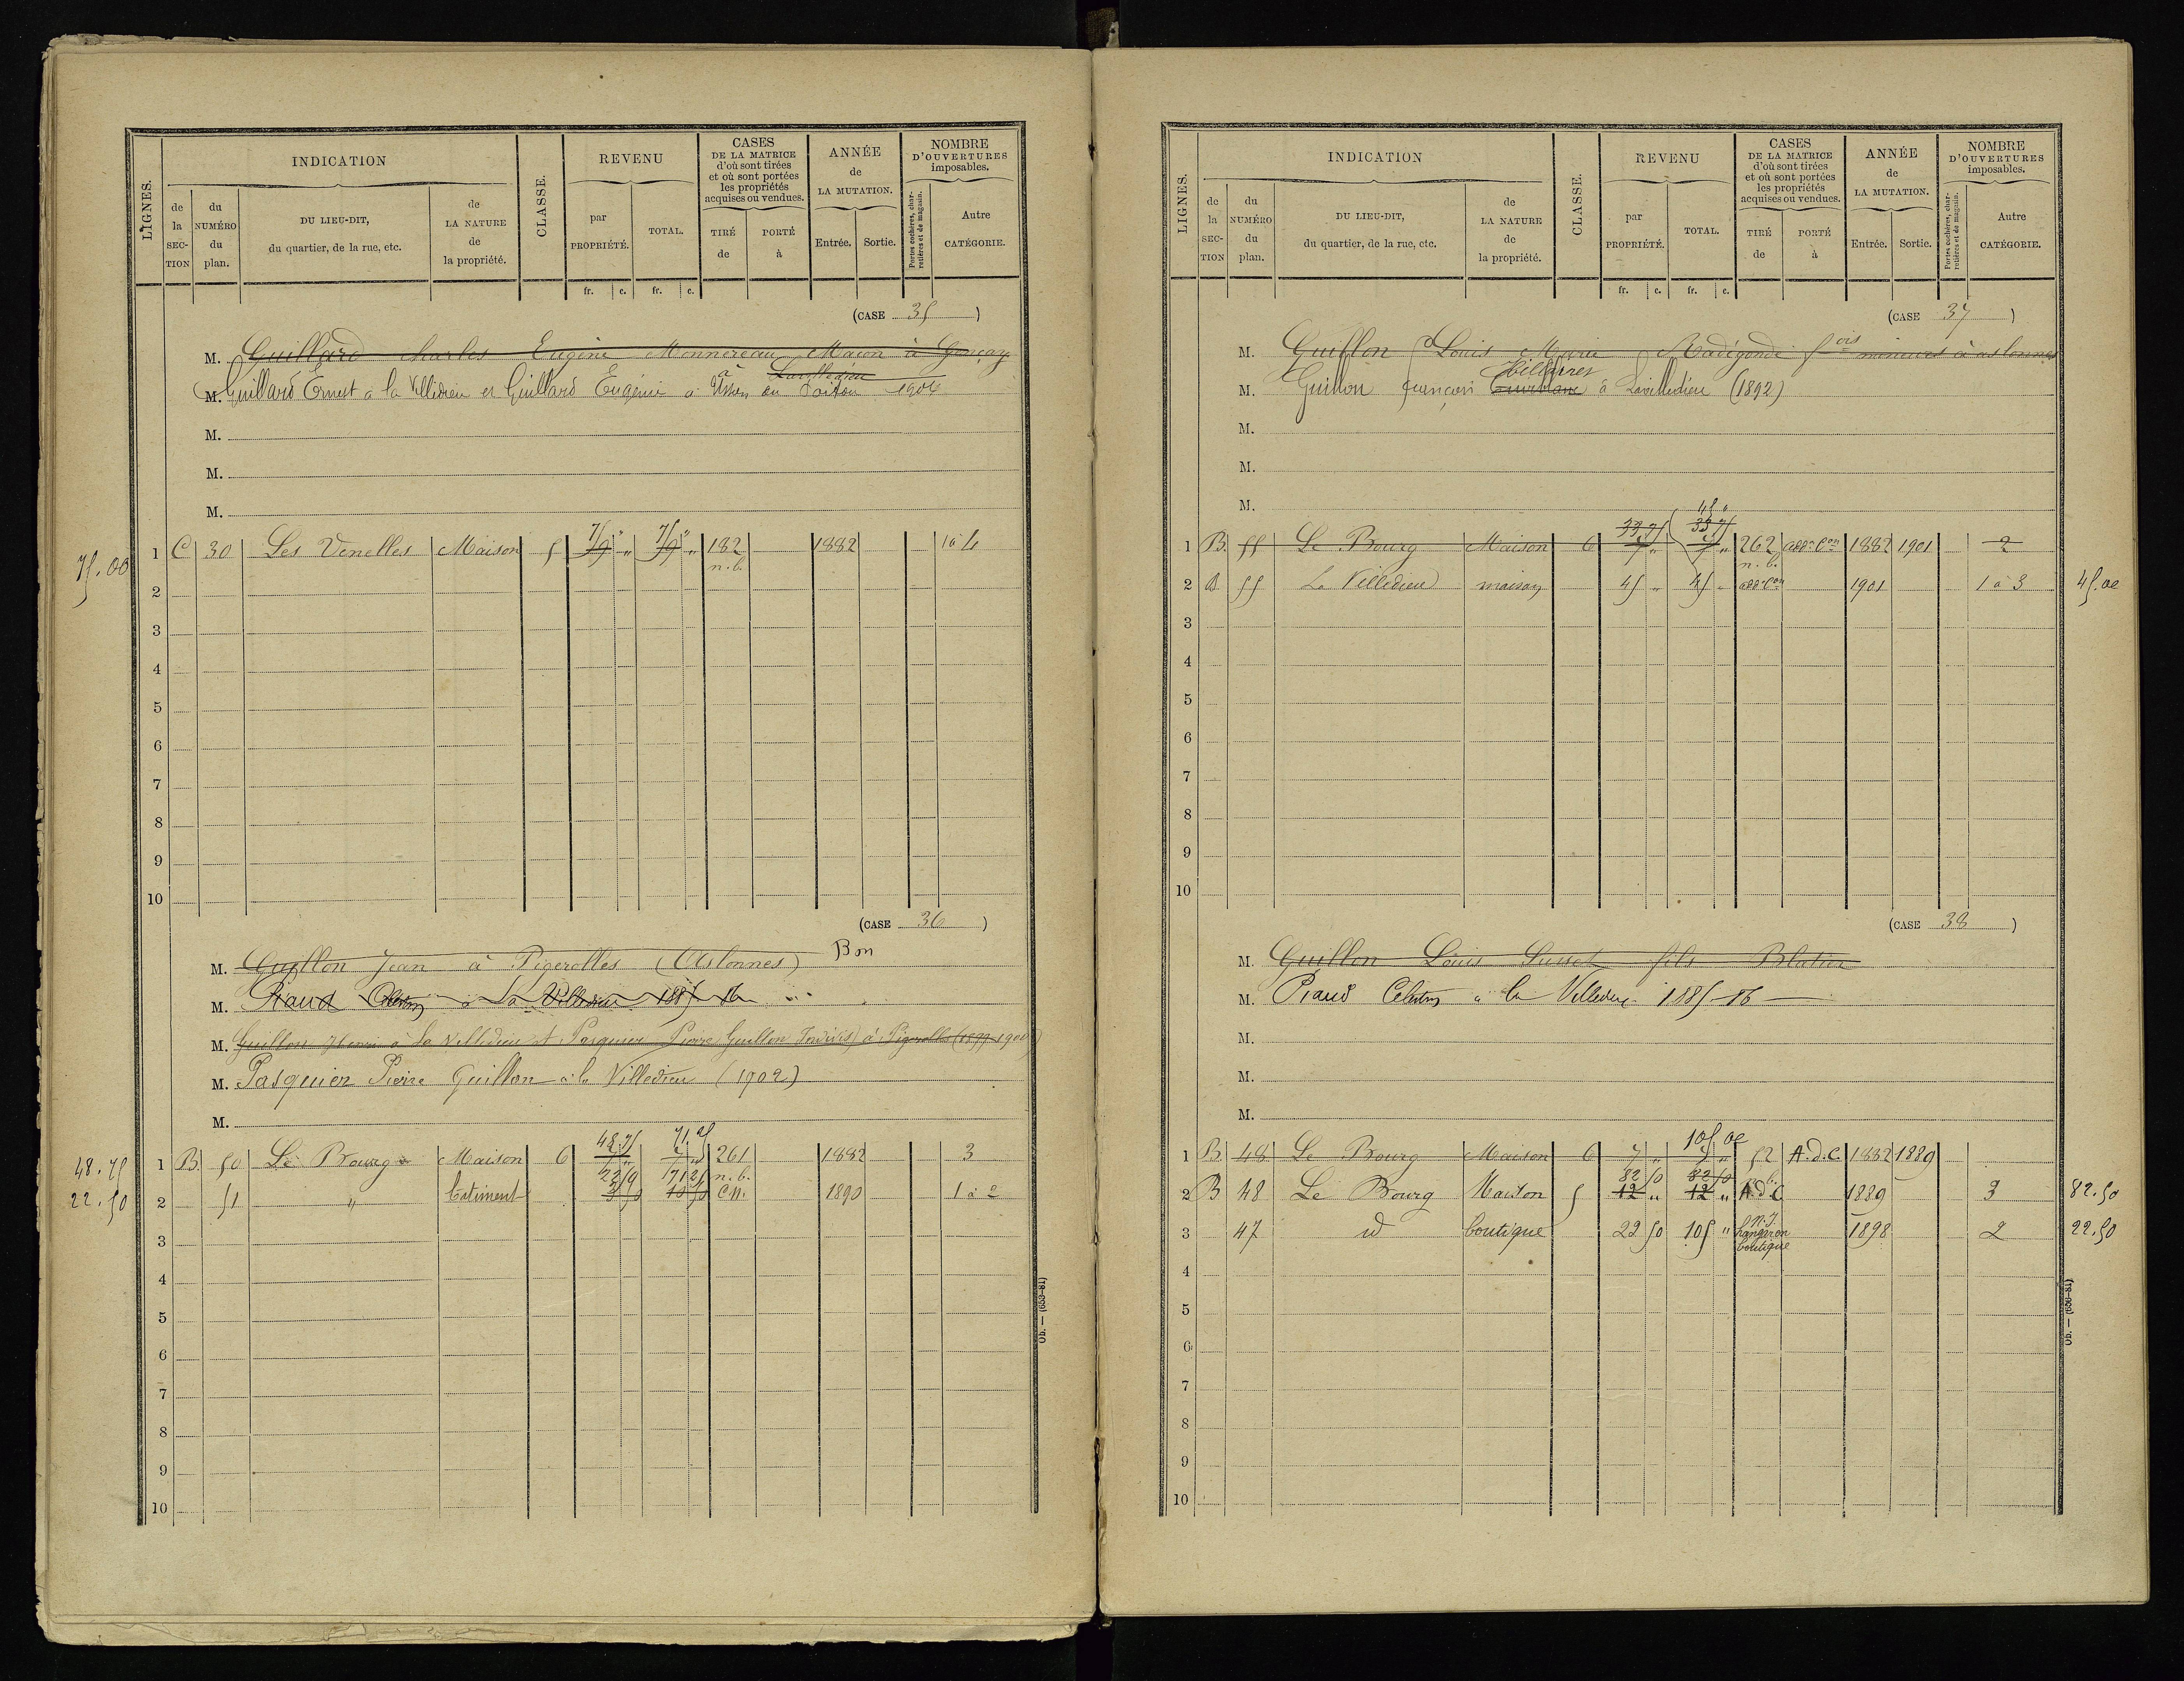 LIGNES. INDICATION CLASSE. REVENU CASES DE LA MATRICE d'où sont tirées et où sont portées les propriétés acquises ou vendues. ANNÉE de LA MUTATION. NOMBRE D'OUVERTURES imposables.
de la SECTION du NUMÉRO du plan. DU LIEU-DIT, du quartier, de la rue, etc. de LA NATURE de la propriété. par PROPRIÉTÉ. TOTAL. TIRÉ de PORTÉ à Entrée. Sortie. Portes cochères, charretières et de magasin. Autre CATÉGORIE.
fr. c. fr. c.
(CASE 35)
M. Guillard Charles Eugène Monnereau Maçon à Gençay
à Lavilledieu
M. Guillard Ernest à la Villedieu et Guillard Eugénie à Usson du Poitou 1906
M.
M.
M.
75 " 75 "
75.00 1 C 30 Les Venelles Maison 5 9 " 9 " 182 1882 1 à 4
n.b.
2
3
4
5
6
7
8
9
10
(CASE 36)
M. Guillon Jean à Pigerolles (Aslonnes) Bon
M. Piaud Célestin à la Villedieu 1885-86
M. Guillon Henri à la Villedieu et Pasquier Pierre Guillon Indivis) à Pigerolles (1899-1901)
M. Pasquier Pierre Guillon à la Villedieu (1902)
M.
48.75 71.25
48.75 1 B 50 Le Bourg Maison 6 7 " 7 " 261 1882 3
n.b.
22.50 2 51 " batiment 3 50 10 50 C.N. 1890 1 à 2
3
4
5
6
7
8
9
10
Ob. — (653-81)
LIGNES. INDICATION CLASSE. REVENU CASES DE LA MATRICE d'où sont tirées et où sont portées les propriétés acquises ou vendues. ANNÉE de LA MUTATION. NOMBRE D'OUVERTURES imposables.
de la SECTION du NUMÉRO du plan. DU LIEU-DIT, du quartier, de la rue, etc. de LA NATURE de la propriété. par PROPRIÉTÉ. TOTAL. TIRÉ de PORTÉ à Entrée. Sortie. Portes cochères, charretières et de magasin. Autre CATÉGORIE.
fr. c. fr. c.
(CASE 37)
M. Guillon Louis Marie Radégonde mineurs à aslonnes
M. Guillon françois à Lavilledieu (1892)
M.
M.
M.
45 "
33 75 33 75
1 B 55 Le Bourg Maison 6 7 " 7 " 262 add. Con 1882 1901 2
n.b.
2 B 55 La Villedieu maison 45 " 45 " add. Con 1901 1 à 3 45.00
3
4
5
6
7
8
9
10
(CASE 38)
M. Guillon Louis fils Blatier
M. Piaud Célestin à la Villedieu 1885-86
M.
M.
M.
105 00
1 B 48 Le Bourg Maison 6 7 " 7 " 52 A.d.C. 1882 1889
82 50 82 50
2 B 48 Le Bourg Maison 5 12 " 12 " A.d.C 1889 3 82.50
3 47 id boutique 22 50 105 " hangar en boutique 1898 2 22.50
4
5
6
7
8
9
10
Ob. — (656-81)